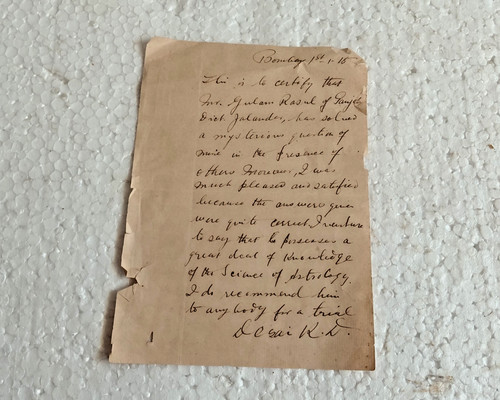 Bombay 1st 1. 15
This is to certify that
Mr. Gulam Rasul of Punjab
Dist Jalandar, has solved
a mysterious question of
mine in the presence of
others Moreover, I was
much pleased and satisfied
because the answers given
were quite correct I venture
to say that he possesses a
great deal of Knowledge
of the Science of Astrology.
I do recommend him
to anybody for a trial
Desai K. D.